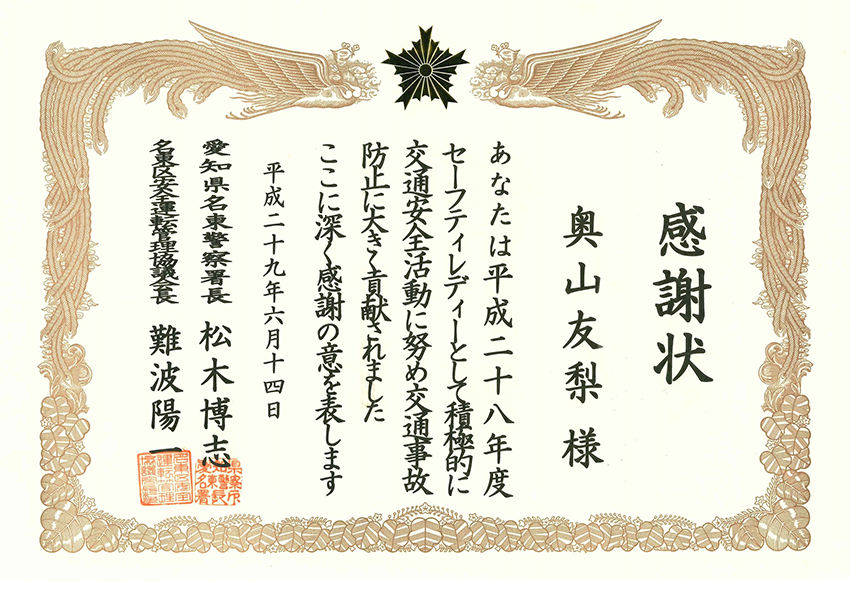 感謝状
奥山友梨 様
あなたは平成二十八年度
セーフティレディーとして積極的に
交通安全活動に努め交通事故
防止に大きく貢献されました
ここに深く感謝の意を表します
平成二十九年六月十四日
愛知県名東警察署長 松木博志
名東区安全運転管理協議会長 難波陽一